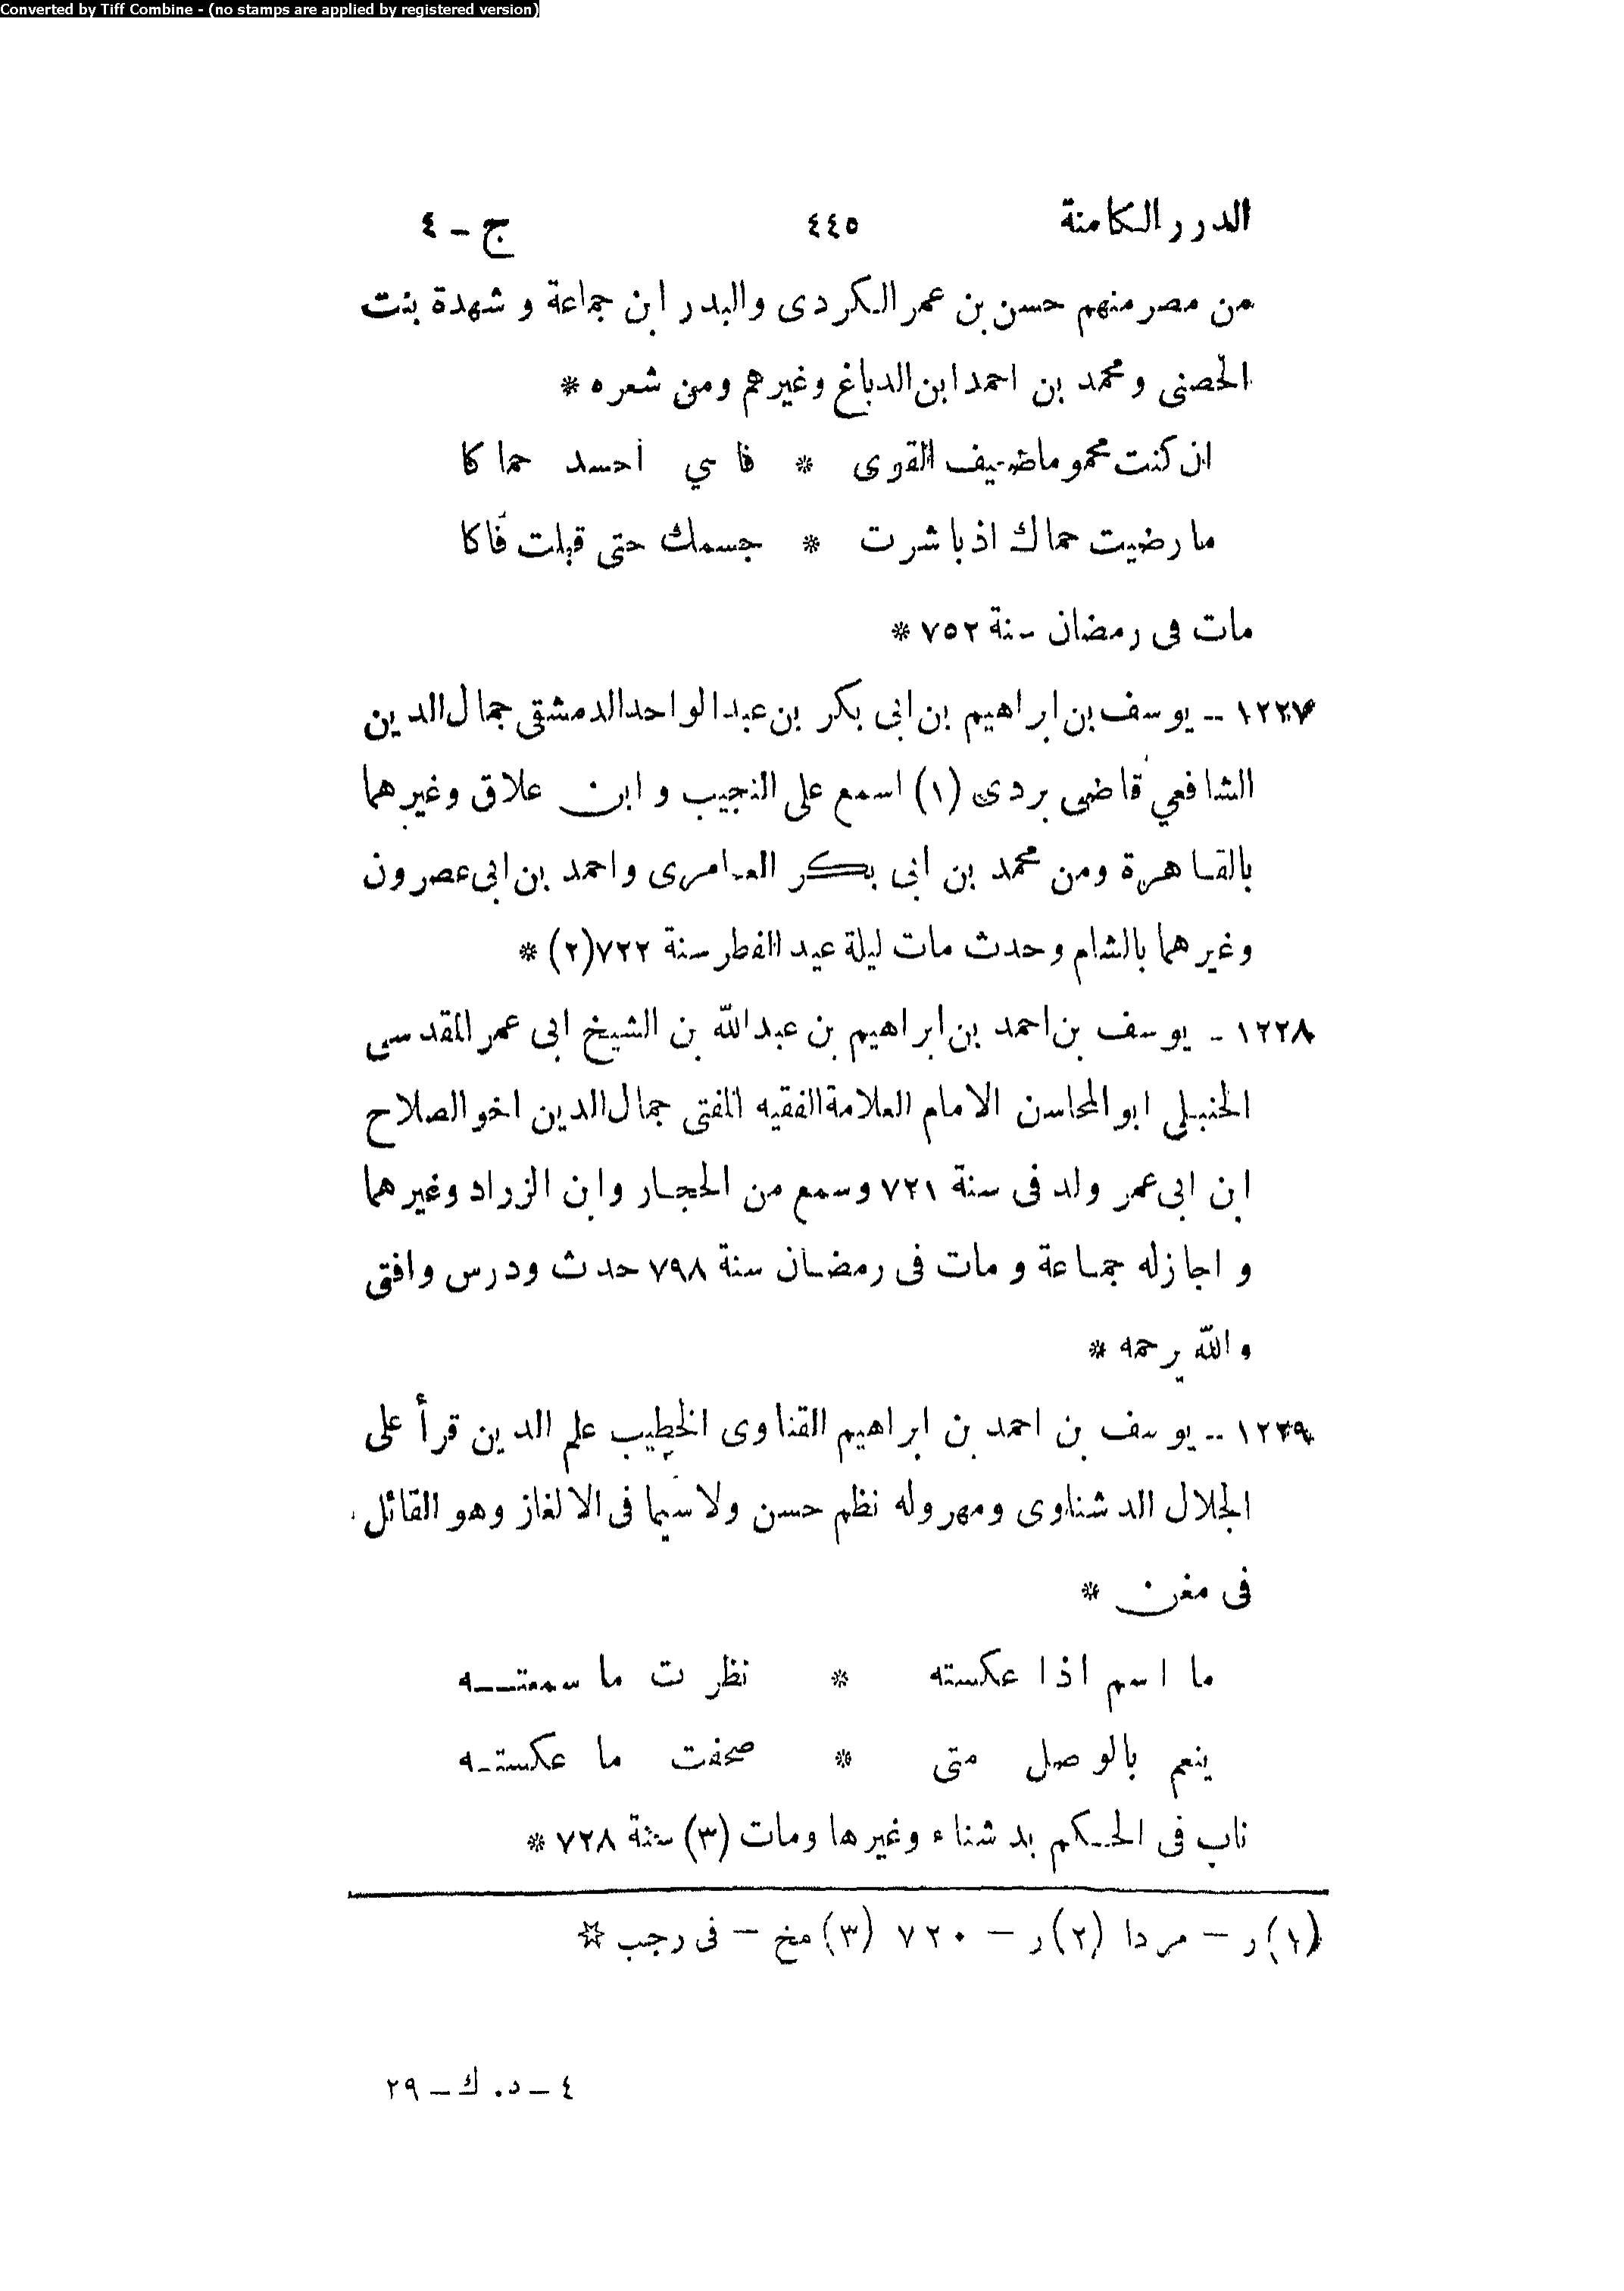 Converted by Tiff Combine - (no stamps are applied by registered version)
الدرر الكامنة ٤٤٥ ج - ٤
من مصر منهم حسن بن عمر الكردى والبدر ابن جماعة و شهدة بنت
الحصنى و محمد بن احمد ابن الدباغ وغيرهم ومن شعره *
ان كنت محموما ضعيف القوى * فانى احسد حماكا
ما رضيت حماك اذ باشرت * جسمك حتى قبلت فاكا
مات فى رمضان سنة ٧٥٢ *
١٢٢٧ - يوسف بن ابراهيم بن ابى بكر بن عبد الواحد الدمشقى جمال الدين
الشافعي قاضى بردى (١) اسمع على النجيب و ابن علاق وغيرهما
بالقاهرة ومن محمد بن ابى بكر العامرى واحمد بن ابى عصرون
وغيرهما بالشام وحدث مات ليلة عيد الفطر سنة ٧٢٢ (٢) *
١٢٢٨ - يوسف بن احمد بن ابراهيم بن عبد الله بن الشيخ ابى عمر المقدسى
الحنبلى ابو المحاسن الامام العلامة الفقيه المفتى جمال الدين اخو الصلاح
ابن ابى عمر ولد فى سنة ٧٢١ وسمع من الحجار وابن الزراد وغيرهما
و اجاز له جماعة و مات فى رمضان سنة ٧٩٨ حدث ودرس وافتى
والله يرحمه *
١٢٢٩ - يوسف بن احمد بن ابراهيم القناوى الخطيب علم الدين قرأ على
الجلال الدشناوى ومهر وله نظم حسن ولا سيما فى الالغاز وهو القائل
فى مغن *
ما اسم اذا عكسته * نظرت ما سمعته
ينعم بالوصل متى * صحفت ما عكسته
ناب فى الحكم بدشناء وغيرها ومات (٣) سنة ٧٢٨ *
(١) ر - مردا (٢) ر - ٧٢٠ (٣) مخ - فى رجب ☆
٤ - د. ك - ٢٩